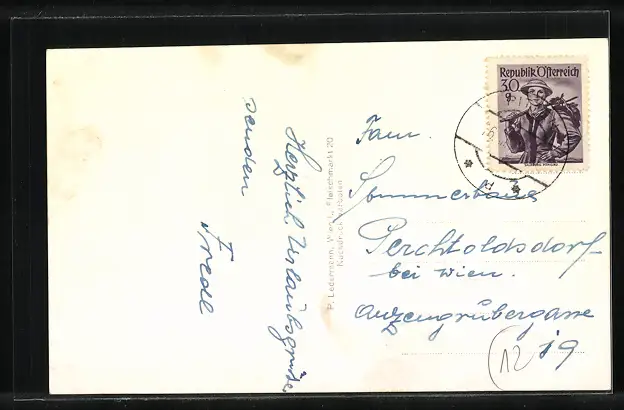 Herzlich Urlaubsgrüße
senden
Friedl
P. Ledermann, Wien I., Fleischmarkt 20
Nachdruck verboten
Republik Österreich
30
g
Fam.
Sommerbauer
Perchtoldsdorf
bei Wien.
19
12